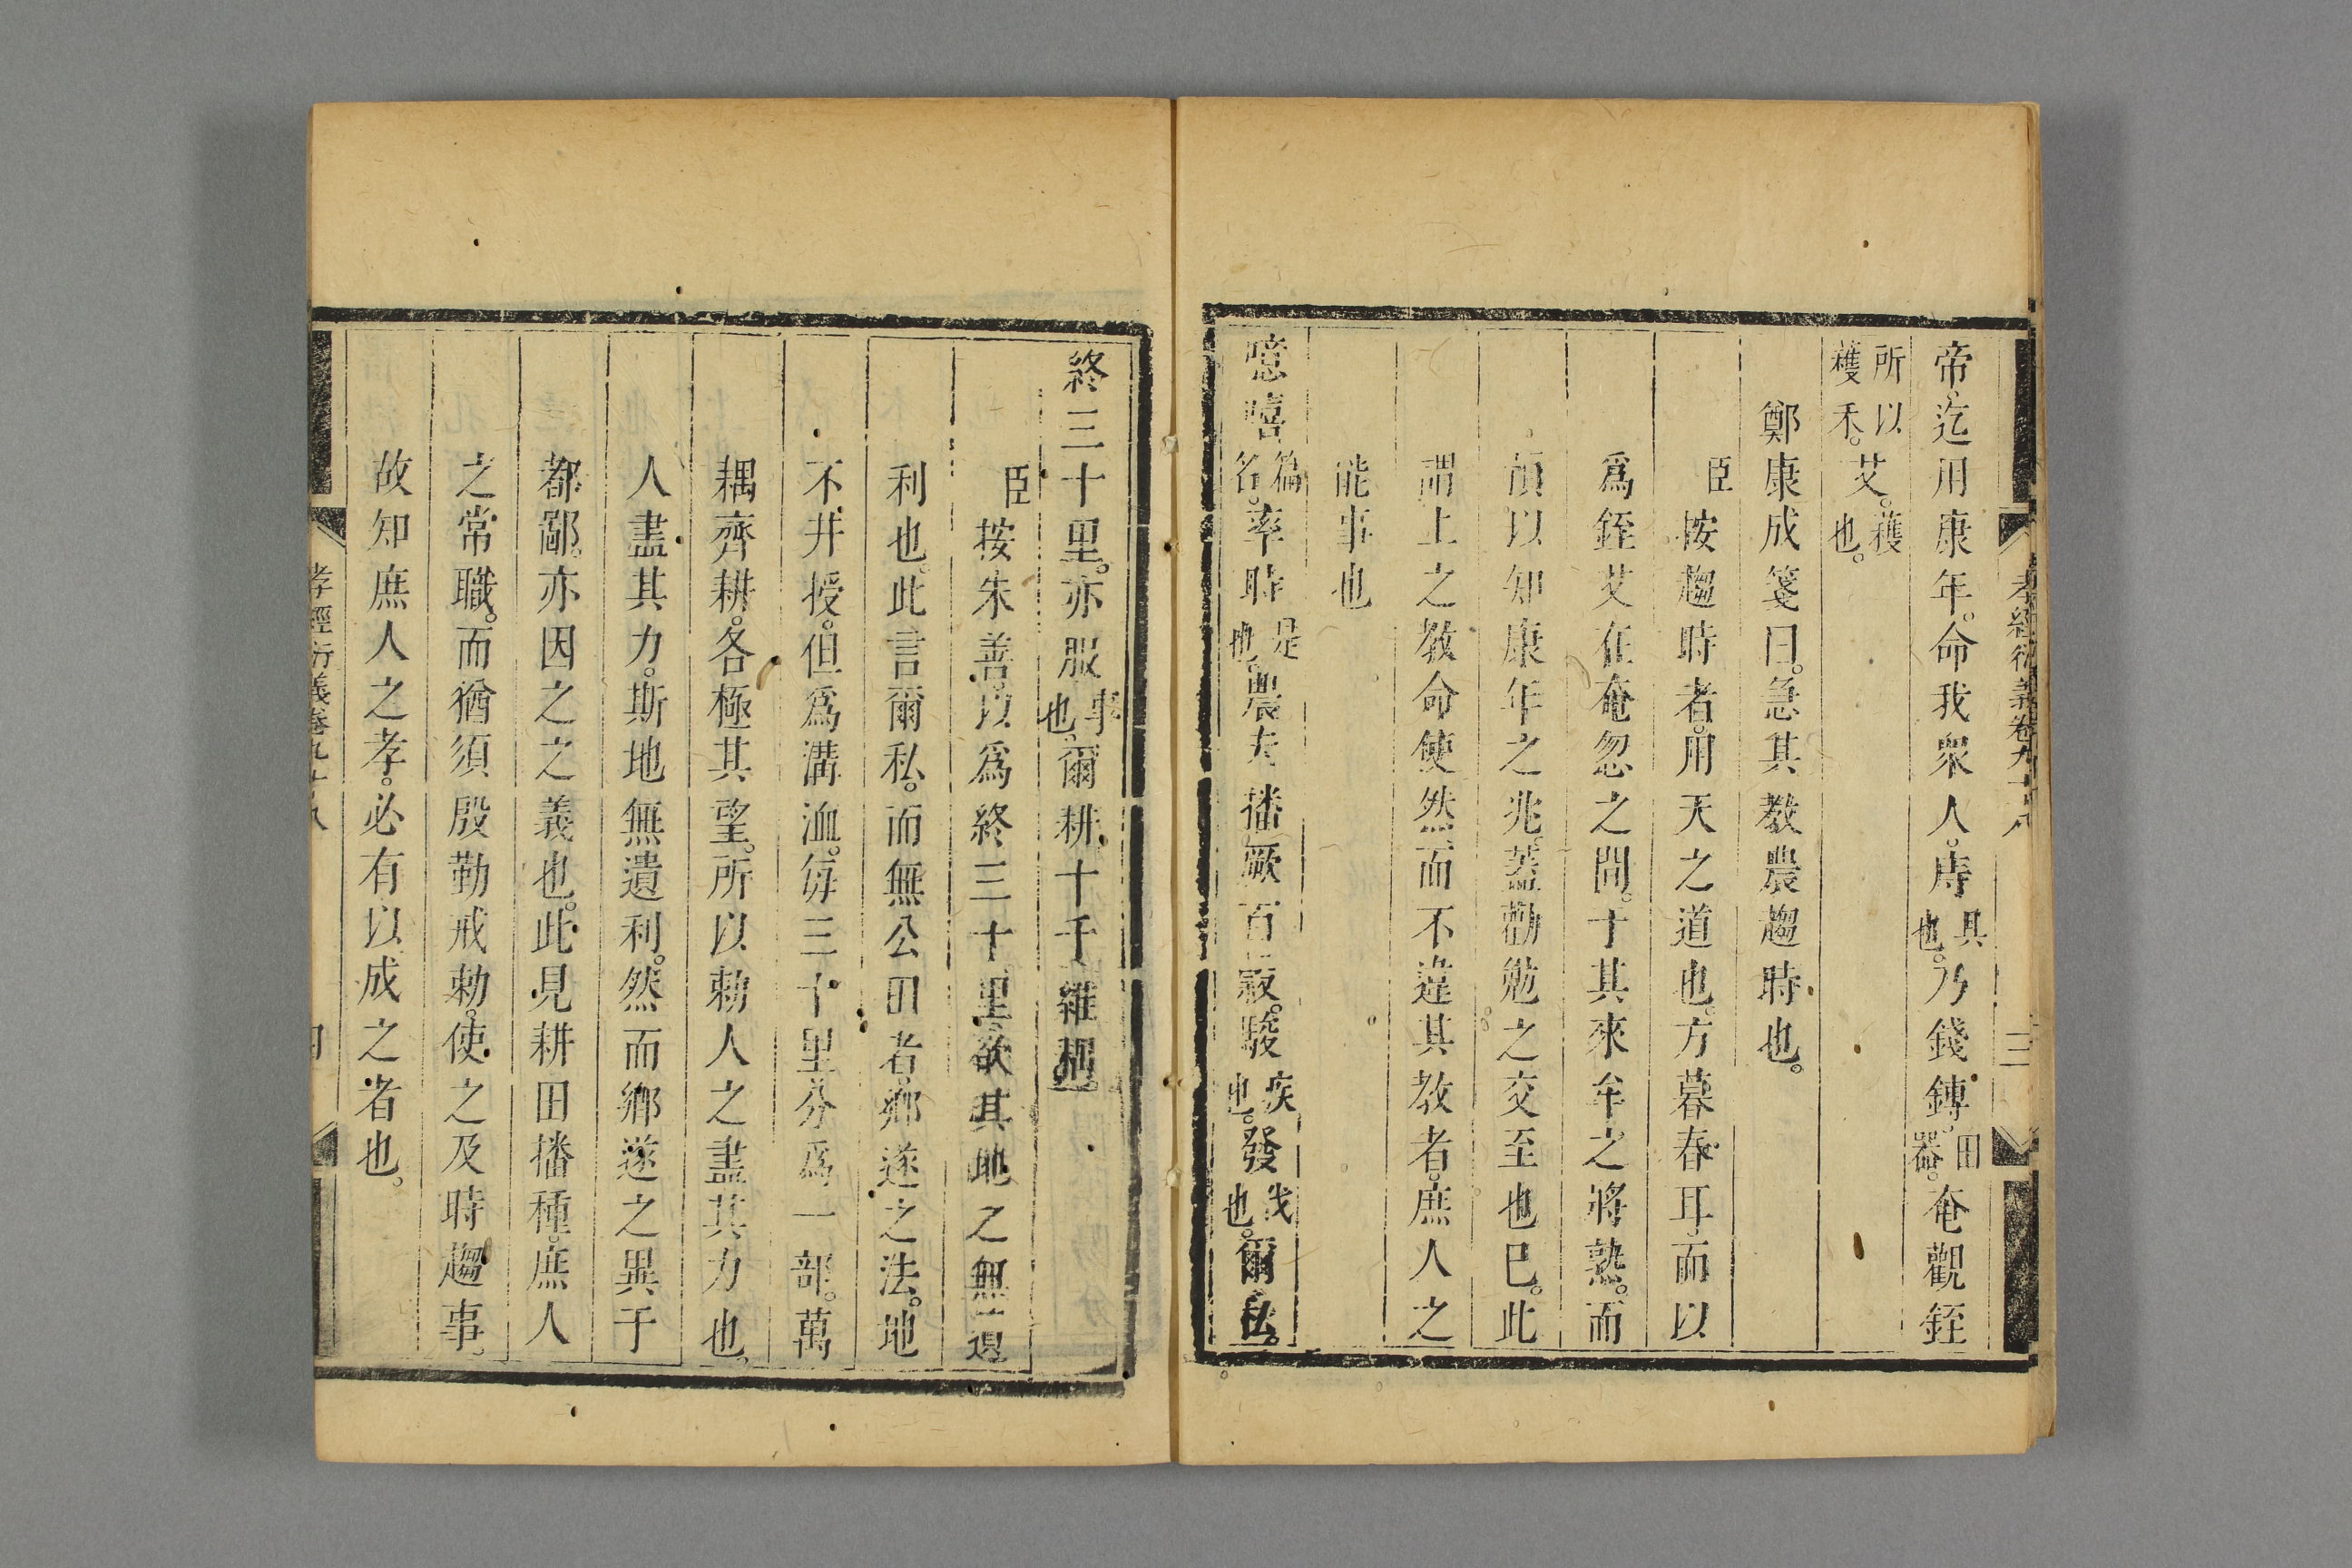 孝經衍義卷九十八
三
帝。迄用康年。命我衆人。庤具也。乃錢鎛。田器。奄觀銍
所以穫禾。艾。穫也。
鄭康成箋曰。急其教農趨時也。
臣按趨時者。用天之道也。方暮春耳。而以
爲銍艾在奄忽之間。于其來牟之將熟。而
頑以知康年之兆。蓋勸勉之交至也巳。此
謂上之教命使然。而不違其教者。庶人之
能事也
噫嘻篇名。率時是也。農夫播厥百穀。駿疾也。發伐也。爾私。
終三十里。亦服事也。爾耕十千維耦。
臣按朱善。以爲終三十里。欲其地之無遺
利也。此言爾私。而無公田者。鄉遂之法。地
不井授。但爲溝洫。毎三十里分爲一部。萬
耦齊耕。各極其望。所以勅人之盡其力也。
人盡其力。斯地無遺利。然而鄉遂之異于
都鄙。亦因之之義也。此見耕田播種。庶人
之常職。而猶須殷勤戒勅。使之及時趨事。
故知庶人之孝。必有以成之者也。
孝經衍義卷九十八